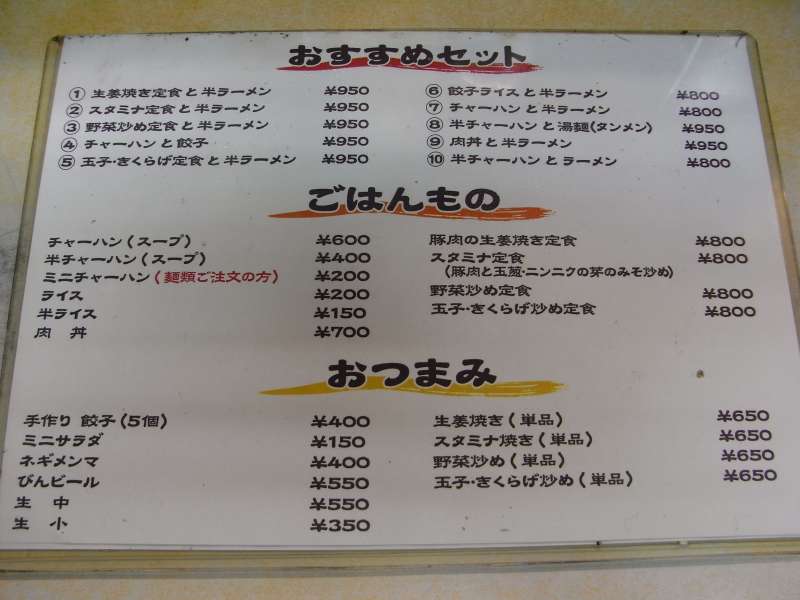 おすすめセット
① 生姜焼き定食と半ラーメン ¥950
② スタミナ定食と半ラーメン ¥950
③ 野菜炒め定食と半ラーメン ¥950
④ チャーハンと餃子 ¥950
⑤ 玉子・きくらげ定食と半ラーメン ¥950
⑥ 餃子ライスと半ラーメン ¥800
⑦ チャーハンと半ラーメン ¥800
⑧ 半チャーハンと湯麺(タンメン) ¥950
⑨ 肉丼と半ラーメン ¥950
⑩ 半チャーハンとラーメン ¥800
ごはんもの
チャーハン(スープ) ¥600
半チャーハン(スープ) ¥400
ミニチャーハン(麺類ご注文の方) ¥200
ライス ¥200
半ライス ¥150
肉 丼 ¥700
豚肉の生姜焼き定食 ¥800
スタミナ定食 ¥800
(豚肉と玉葱・ニンニクの芽のみそ炒め)
野菜炒め定食 ¥800
玉子・きくらげ炒め定食 ¥800
おつまみ
手作り 餃子(5個) ¥400
ミニサラダ ¥150
ネギメンマ ¥400
びんビール ¥550
生 中 ¥550
生 小 ¥350
生姜焼き(単品) ¥650
スタミナ焼き(単品) ¥650
野菜炒め(単品) ¥650
玉子・きくらげ炒め(単品) ¥650